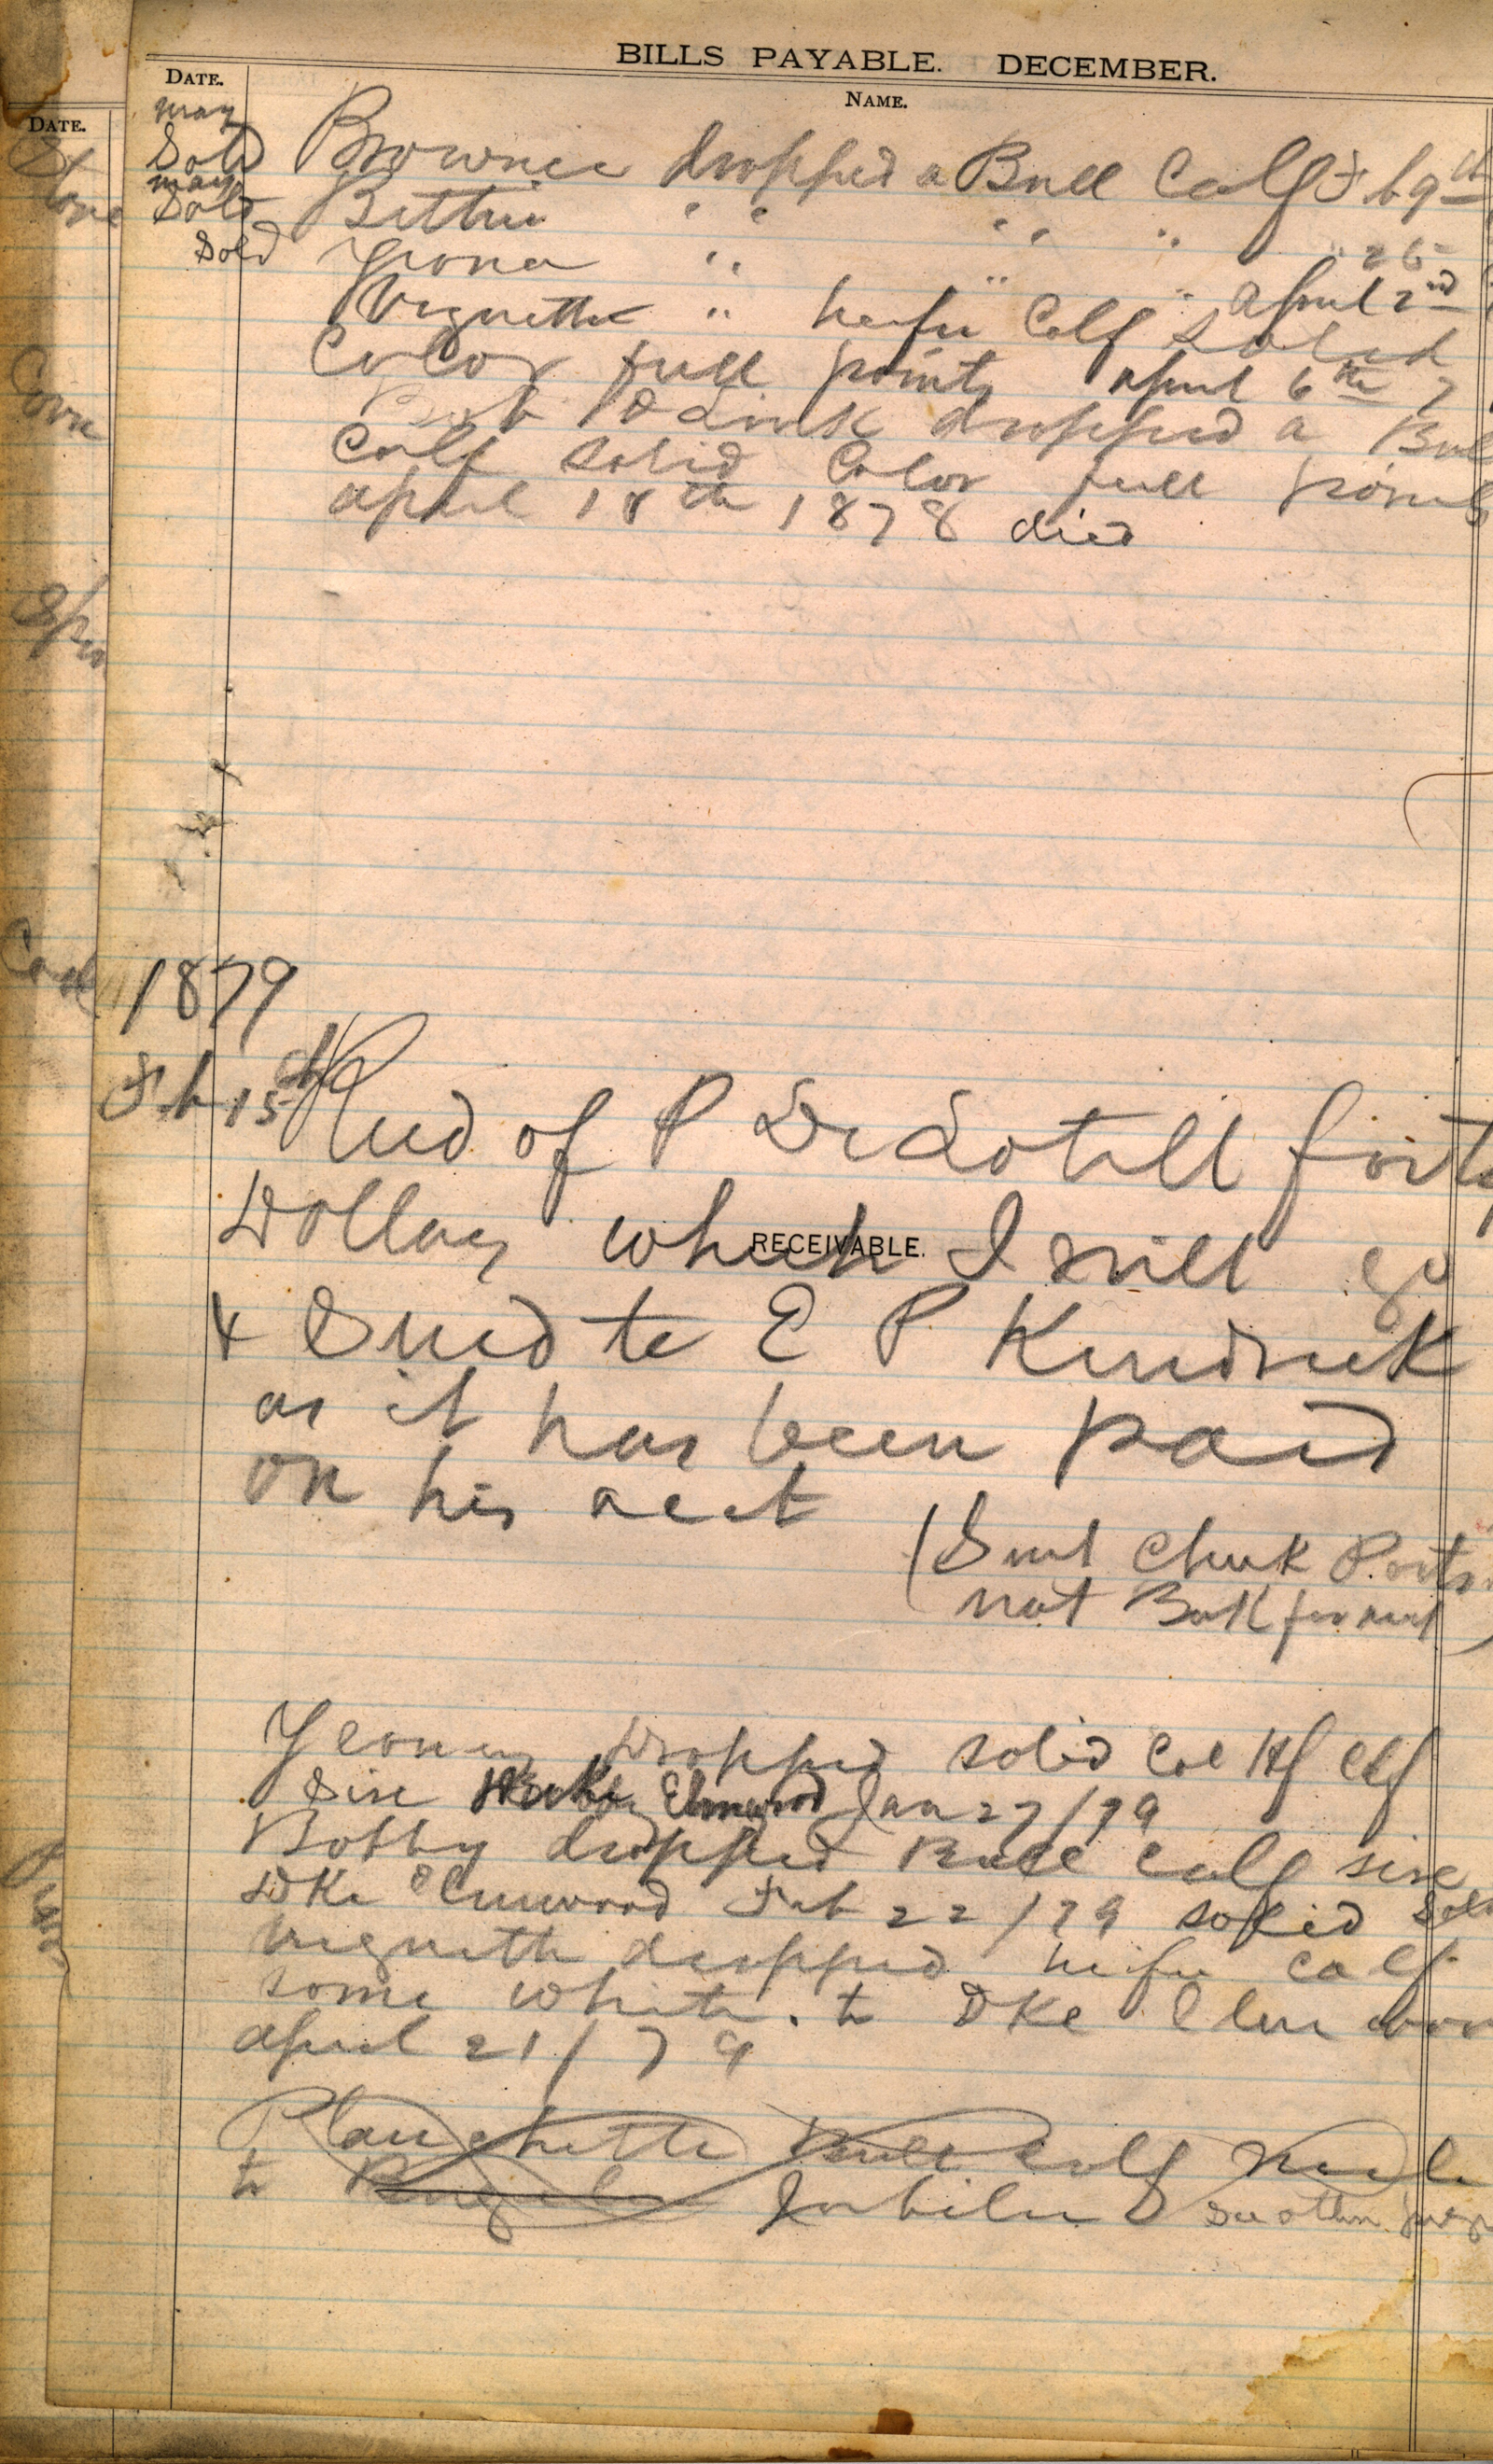 BILLS PAYABLE. DECEMBER.
DATE.
NAME.
DATE.
May
Sold Brownee dropped a Bull Calf Feb 9th
May
Sold Bettie " " " " " 26
Sold Yrona " " " April 2nd
Vignette " heifer Calf Solid
Color full points April 6th 7
Bob O Link dropped a Bul
Calf Solid Color full points
April 18th 1878 died
Store
Corn
1879
Feb 15th Recd of P De Lotell forty
Dollars which I will
RECEIVABLE.
& Send to E P Kendrick
as it has been paid
on his acct
(Sent Check
not Bank
Yeoney Dropped solid Col Hf Clf
Sire Duke Elmwood Jan 27/79
Bobby dropped Bull Calf sire
Dke Elmwood Feb 22/79 solid Sold
Vignette dropped heifer calf
some white. to Dke Elm woo
April 21/79
Planchette Bull Calf
to Jubilee See other page